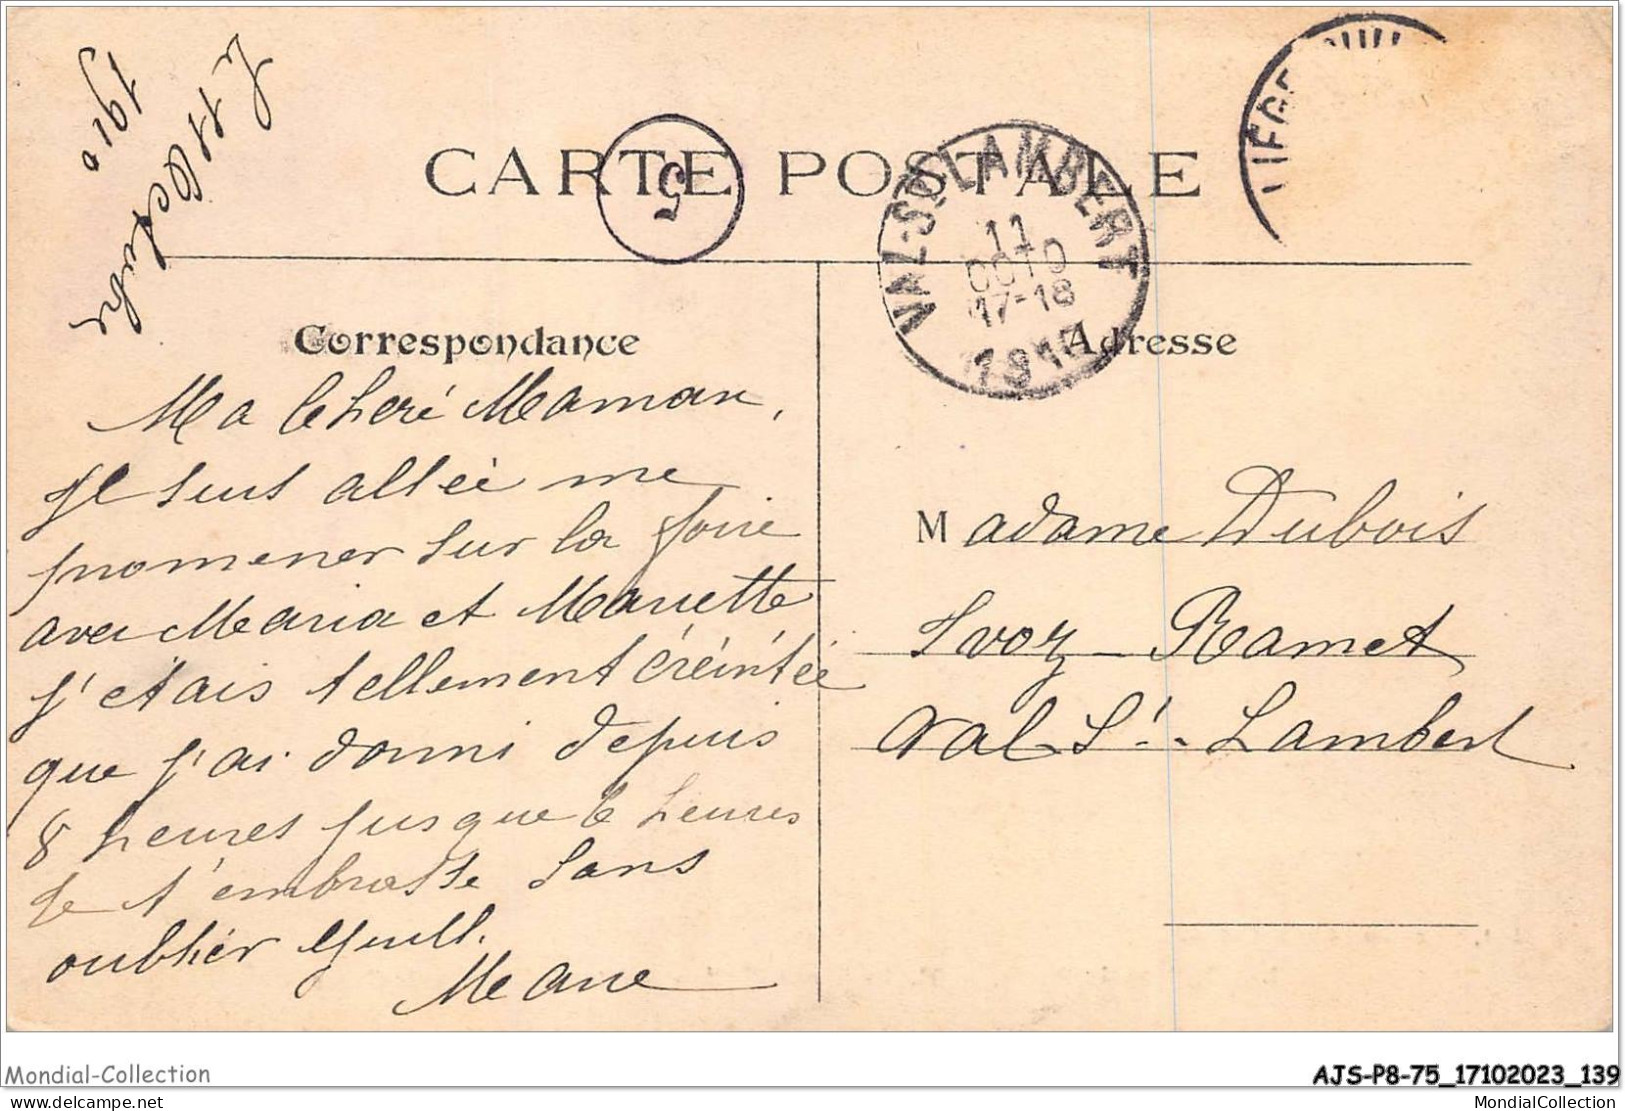 Le 11 Octobre
1910
CARTE POSTALE
5
VAL-ST-LAMBERT
11
OCTO
17-18
1910
Correspondance
Adresse
Ma Cheré Maman,
Je suis allée me
promener sur la foire
avec Maria et Mariette
j'étais tellement éreintée
que j'ai dormi depuis
8 heures jusque 6 heures
Je t'embrasse sans
oublier Guill.
Marie
Madame Dubois
Ivoz-Ramet
Val St. Lambert
Mondial-Collection
AJS-P8-75_17102023_139
delcampe.net
MondialCollection